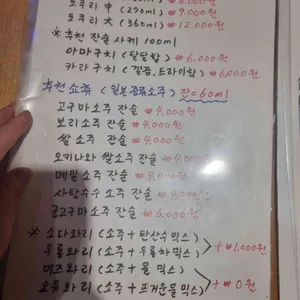 도쿠리 中 (290ml) ₩9,000원
도쿠리 大 (360ml) ₩12,000원
* 추천 잔술 사케 100ml
아마구치 (달달함) ₩6,000원
카라구치 (깔끔,드라이함) ₩6,000원
추천 소주 (일본증류소주) 잔=60ml
고구마 소주 잔술 ₩4,000원
보리 소주 잔술 ₩4,000원
쌀 소주 잔술 ₩4,000원
오키나와 쌀소주 잔술 ₩4,000원
메밀 소주 잔술 ₩5,000원
사탕수수 소주 잔술
군고구마 소주 잔술 ₩6,000원
※ 소다와리 (소주+탄산수 믹스)
우롱와리 (소주+우롱차 믹스) +₩1,000원
미즈와리 (소주+물 믹스)
오유와리 (소주+뜨거운물 믹스) +₩0원